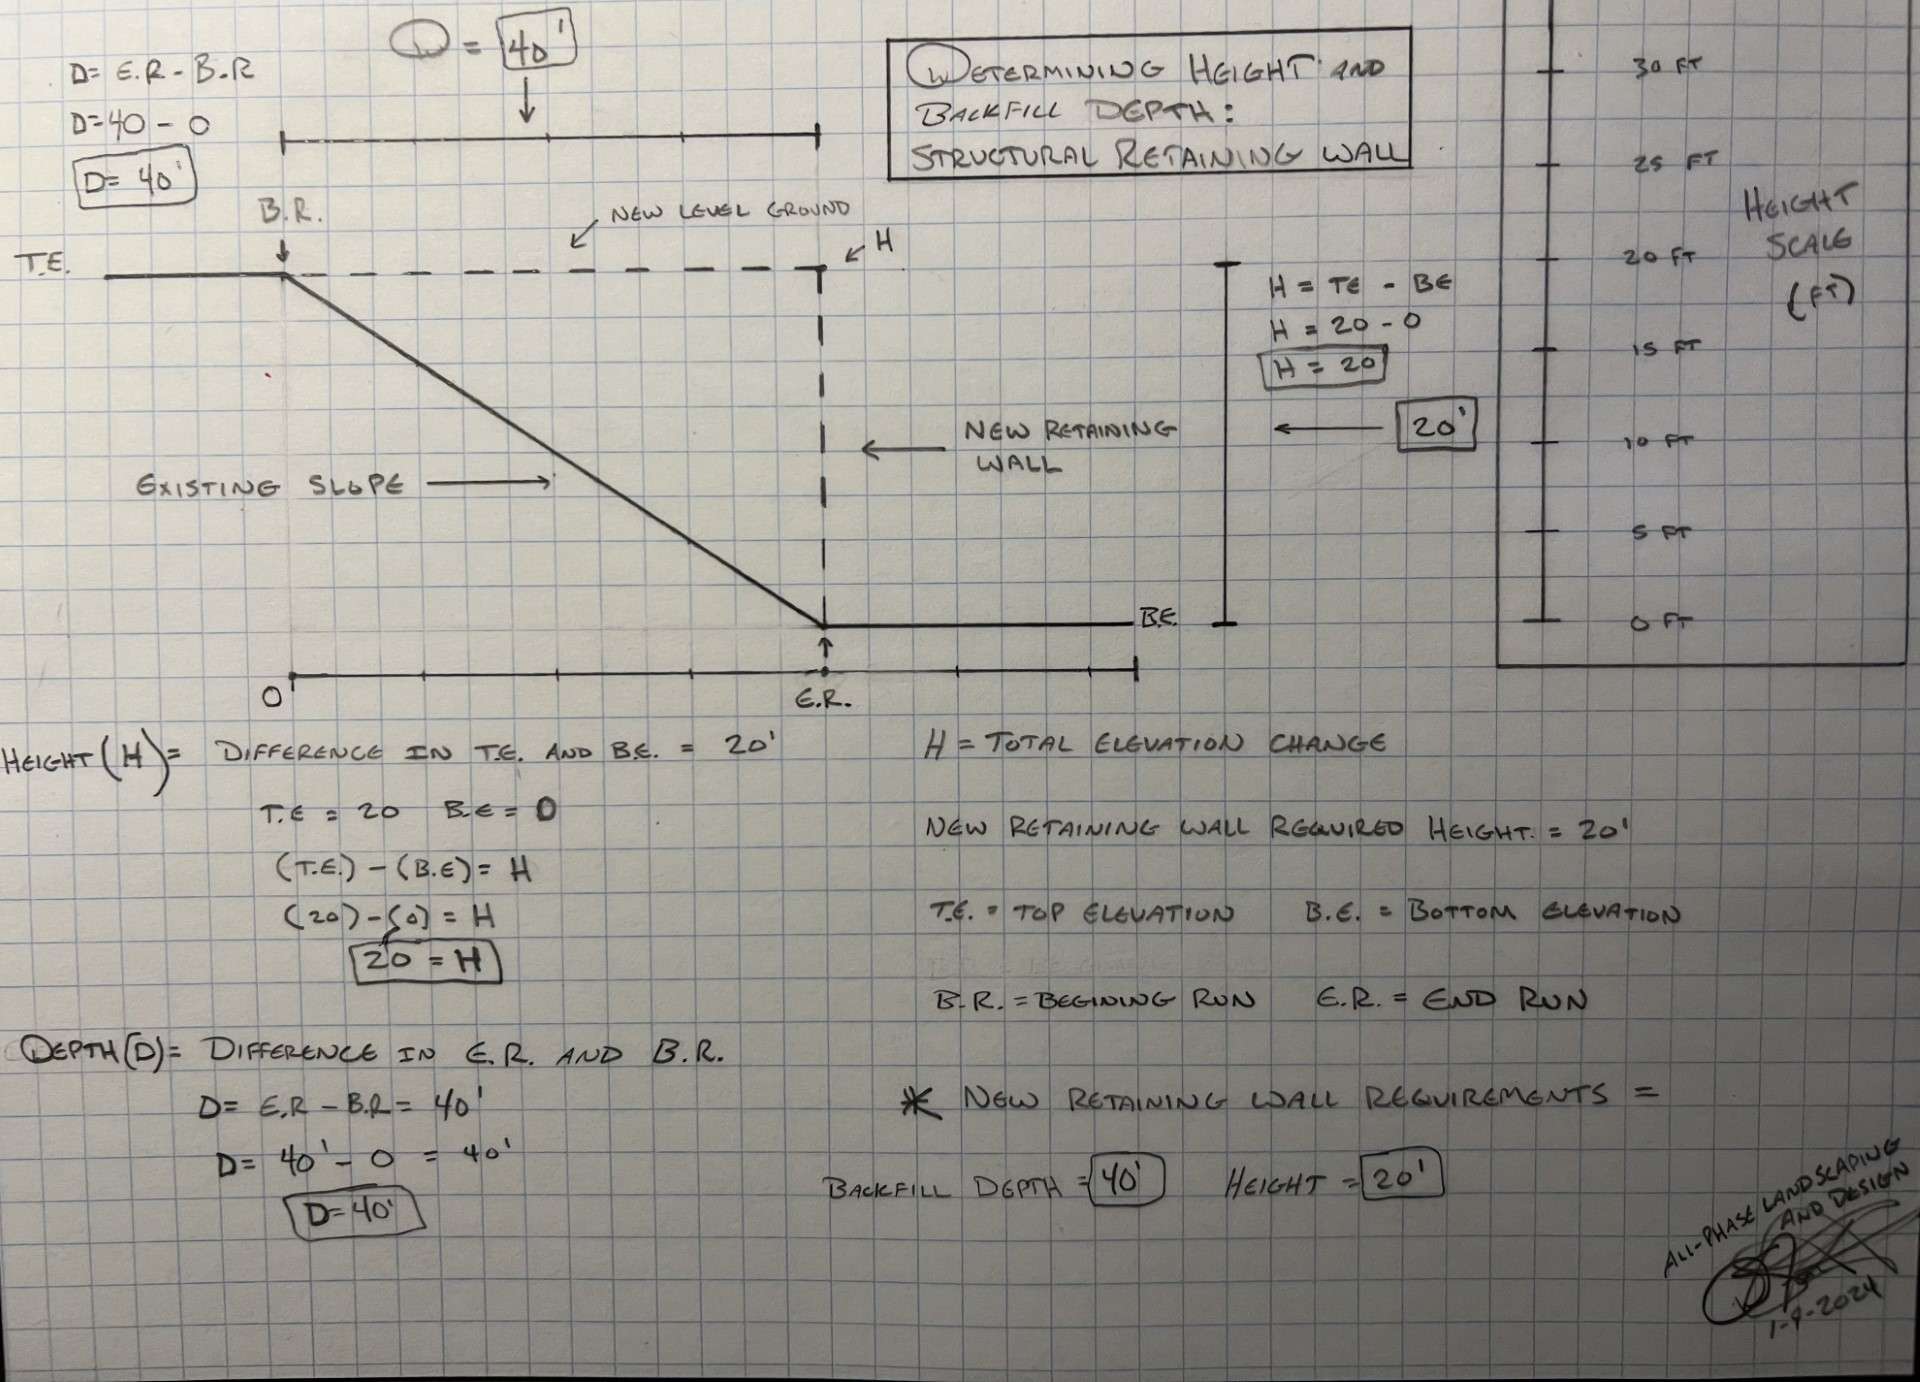 D = 40'
D= E.R - B.R
D=40 - 0
D= 40'
DETERMINING HEIGHT AND
BACKFILL DEPTH:
STRUCTURAL RETAINING WALL
B.R.
NEW LEVEL GROUND
T.E.
H
H = TE - BE
H = 20 - 0
H = 20
20'
NEW RETAINING
WALL
EXISTING SLOPE
B.E.
0
E.R.
30 FT
25 FT
20 FT
15 FT
10 FT
5 FT
0 FT
HEIGHT
SCALE
(FT)
HEIGHT (H) = DIFFERENCE IN T.E. AND B.E. = 20'
T.E = 20 B.E = 0
(T.E.) - (B.E) = H
(20) - (0) = H
20 = H
DEPTH (D) = DIFFERENCE IN E.R. AND B.R.
D= E.R - B.R = 40'
D= 40' - 0 = 40'
D= 40'
H = TOTAL ELEVATION CHANGE
NEW RETAINING WALL REQUIRED HEIGHT. = 20'
T.E. = TOP ELEVATION B.E. = BOTTOM ELEVATION
B.R. = BEGINING RUN E.R. = END RUN
* NEW RETAINING WALL REQUIREMENTS =
BACKFILL DEPTH = 40' HEIGHT = 20'
ALL-PHASE LANDSCAPING
AND DESIGN
1-9-2024